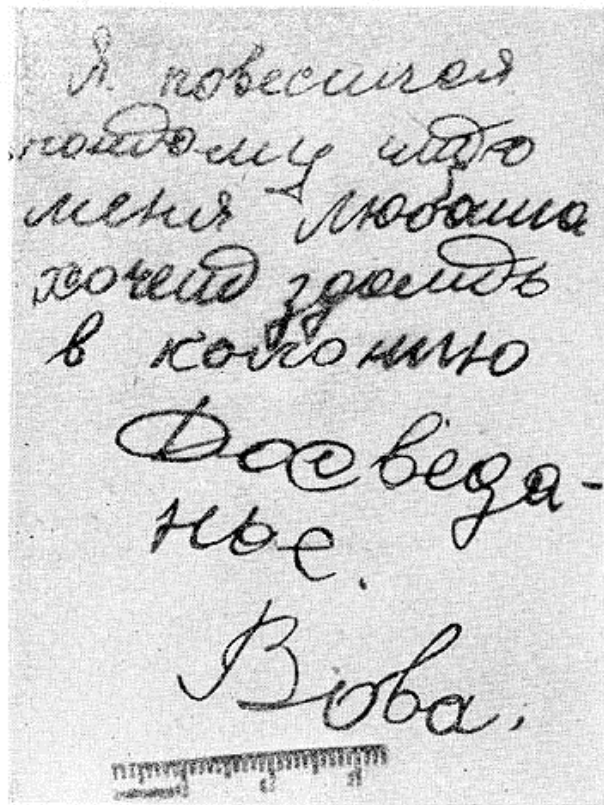 Я повесился
поэтому што
меня Любаша
хочет здать
в колонию
Досведа-
нье.
Вова.